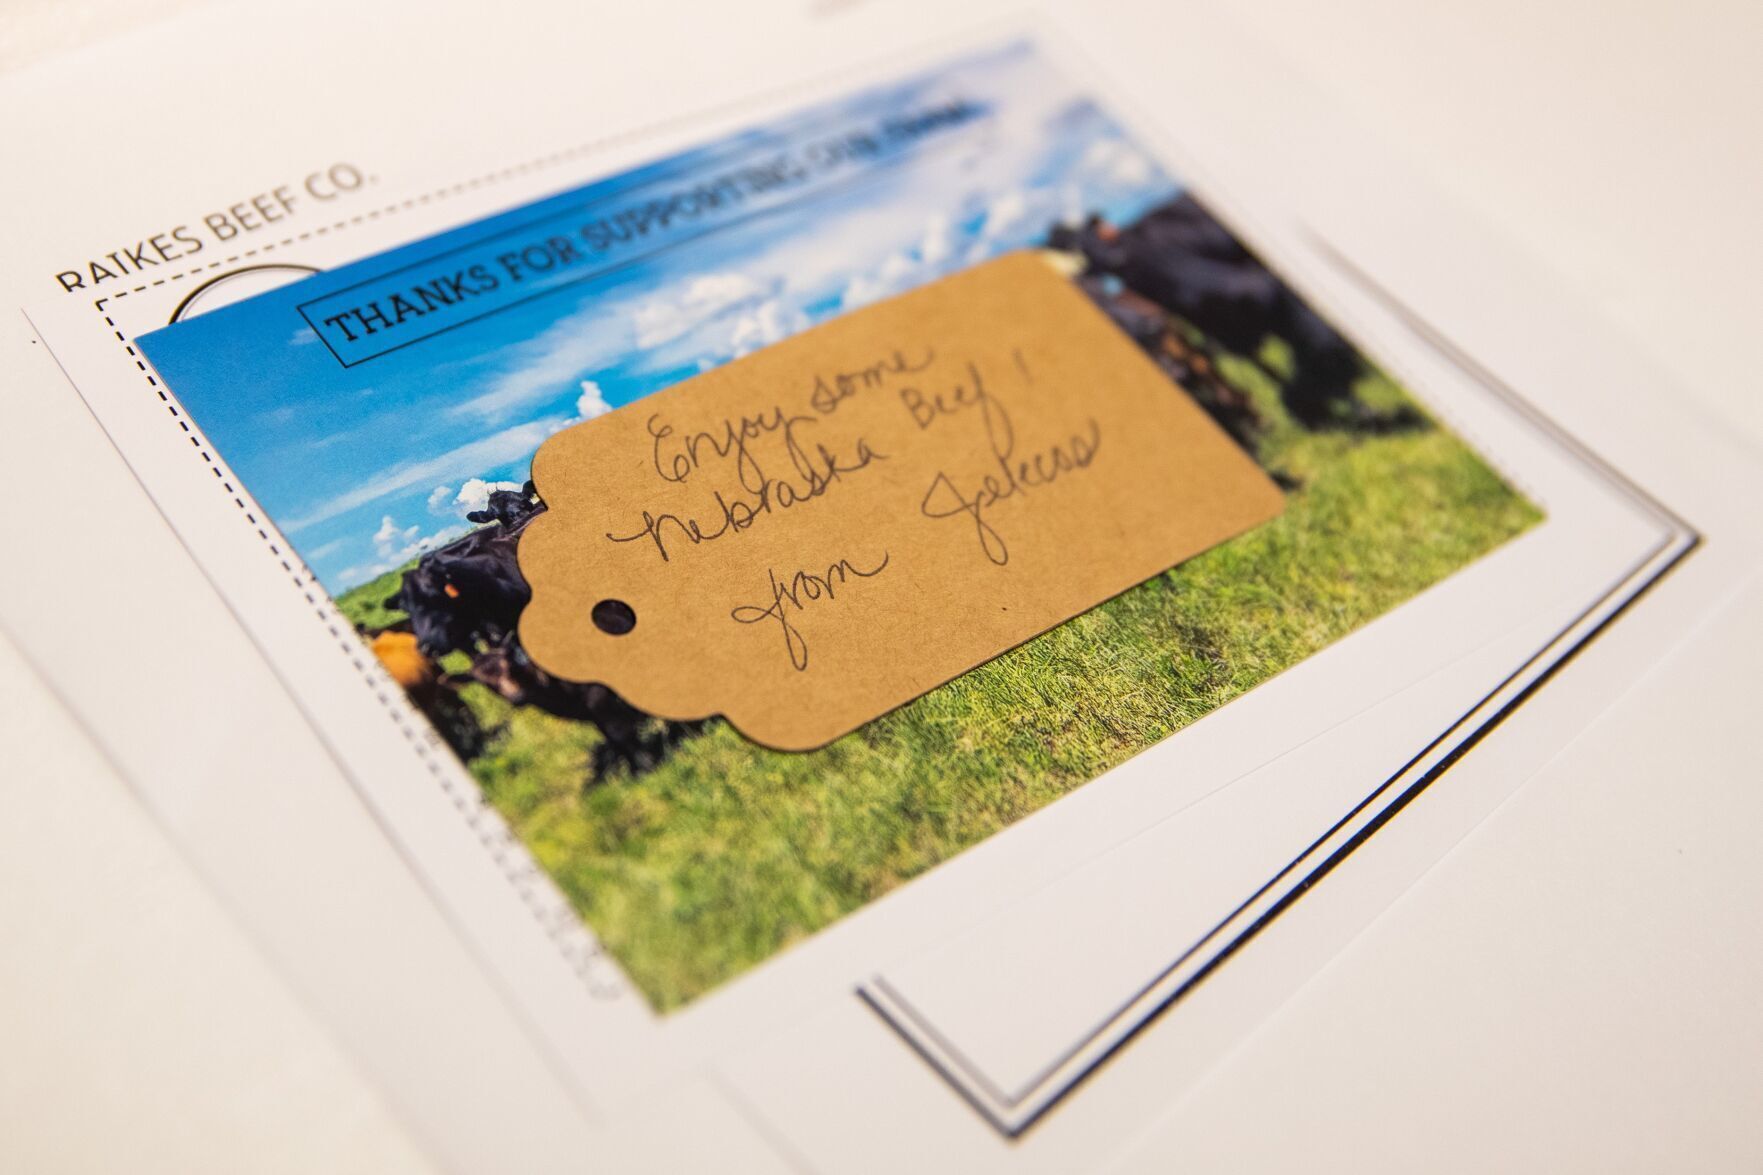 RAIKES BEEF CO.
THANKS FOR SUPPORTING OUR
Enjoy some
Nebraska Beef!
from